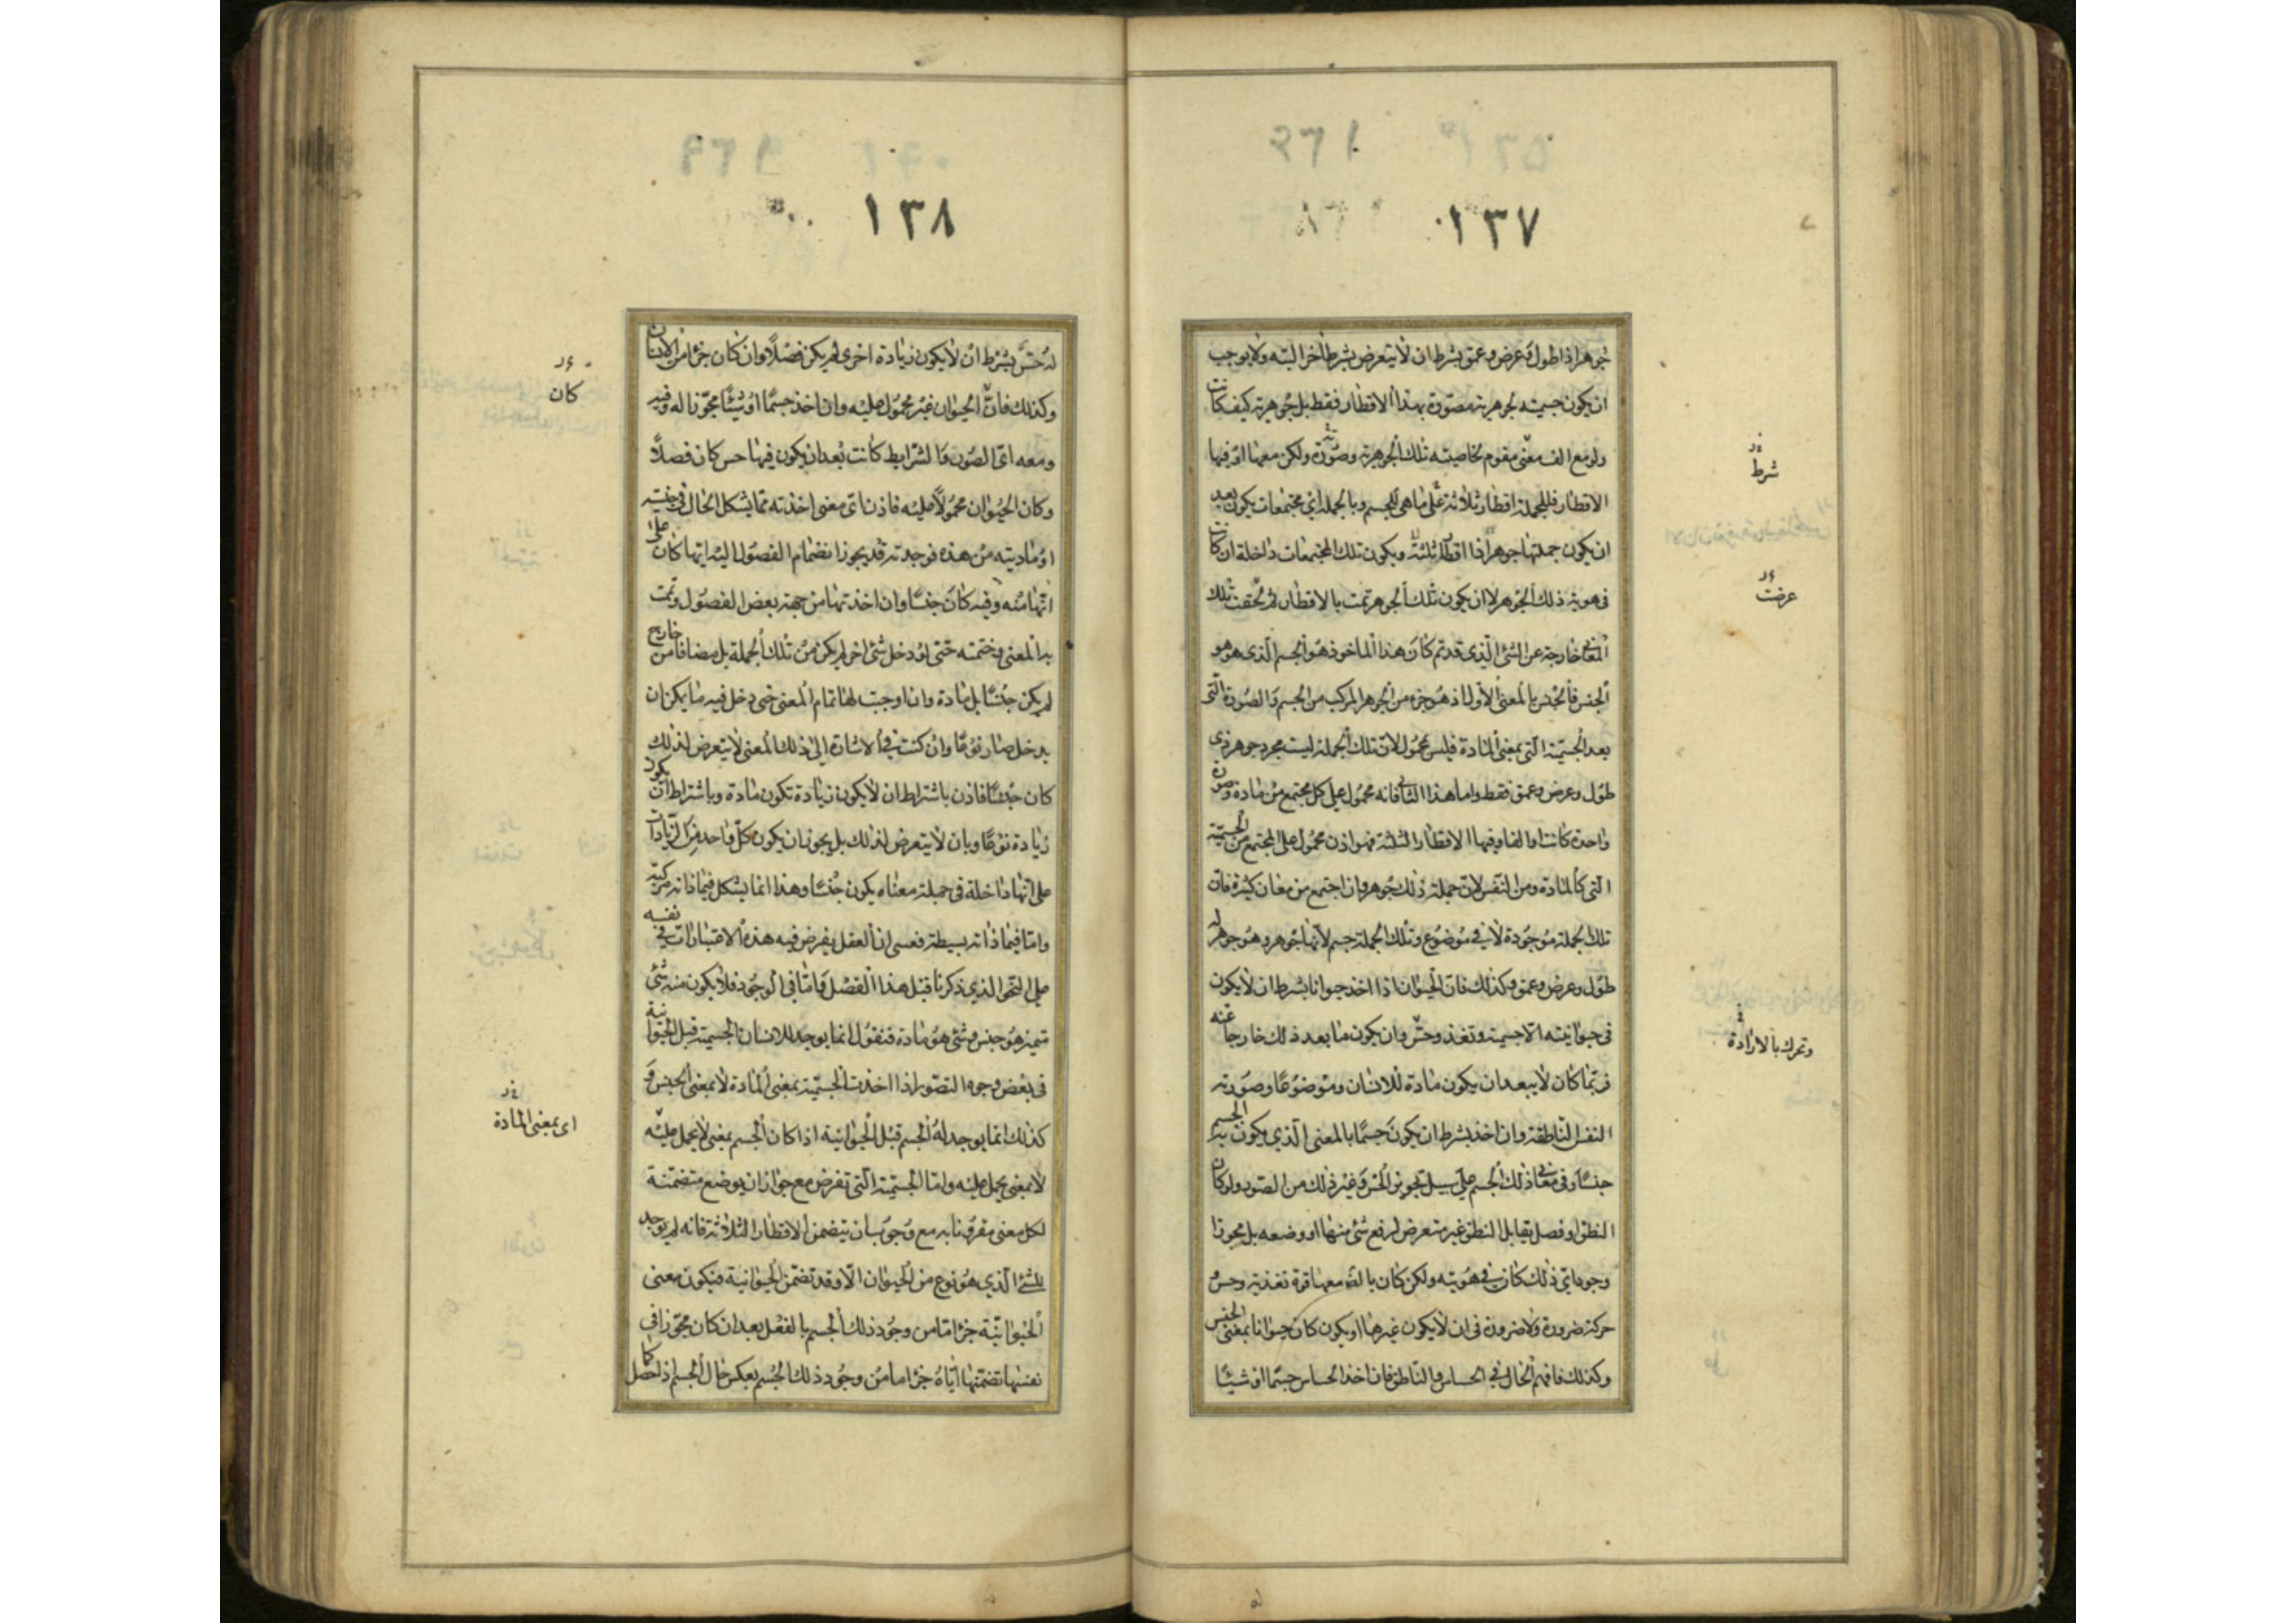 ١٣٧
جوهرا ذا طول وعرض وعمق بشرط ان لا يتعرض بشرط آخر البته ولا يوجب
ان يكون جسميته بجوهرية مصورة بهذا الاقطار فقط بل جوهرية كيف كانت
ولو مع الف معنى مقوم لخاصيته تلك الجوهرية وصورة ولكن معها او فيها
الاقطار فللجملة اقطار ثلاثة على ما هي للجسم وبالجملة اي مجتمعات يكون بعد
ان يكون جملتها جوهرا ذا اقطار ثلثة ويكون تلك المجتمعات داخلة ان كانت
فى هوية ذلك الجوهر لا ان يكون تلك الجوهر تمت بالاقطار ثم لحقت تلك
المعانى خارجة عن الشئ الذى قد تم كان هذا الماخوذ هو الجسم الذى هو هو
الجنس فالجسم بالمعنى الاول اذ هو جزء من الجوهر المركب من الجسم والصورة التى
بعد الجسمية التى بمعنى المادة فليس بمحمول لان تلك الجملة ليست مجرد جوهر ذى
طول وعرض وعمق فقط واما هذا الثانى فانه محمول على كل مجتمع من مادة وصورة
واحدة كانت او الفا وفيها الاقطار الثلثة فهو اذن محمول على المجتمع من الجسمية
التى كالمادة ومن النفس لان جملة ذلك جوهر وان اجتمع من معان كثيرة فان
تلك الجملة موجودة لا فى موضوع وتلك الجملة جسم لانها جوهر وهو جوهر له
طول وعرض وعمق وكذلك فان الحيوان اذا اخذ حيوانا بشرط ان لا يكون
فى حيوانيته الا جسمية وتغذ وحس وان يكون ما بعد ذلك خارجا عنه
فربما كان لا يبعد ان يكون مادة للانسان وموضوعا وصورته
النفس الناطقة وان اخذ بشرط ان يكون جسما بالمعنى الذي يكون به الجسم
جنسا وفى معانى ذلك الجسم على سبيل تجويز الحس وغير ذلك من الصور ولو كان
النطق او فصل يقابل النطق غير متعرض لرفع شئ منها او وضعه بل مجوزا
وجود اى ذلك كان فى هويته ولكن كان بالضه معها قوة تغذية وحس
حركة ضرورة ولا ضرورة فى ان لا يكون غيرها او يكون كان حيوانا بمعنى الجنس
وكذلك فافهم الحال فى الحساس والناطق فان اخذ الحساس جسما او شيئا
شرط
عرضت
وتحرك بالارادة
١٣٨
له حس بشرط ان لا يكون زيادة اخرى لم يكن فصلا وان كان جزءا من الانسان
وكذلك فان الحيوان غير محمول عليه وان اخذ جسما او شيئا مجوزا له وفيه
ومعه اى الصور والشرايط كانت بعد ان يكون فيها حس كان فصلا
وكان الحيوان محمولا عليه فاذن اى معنى اخذته مما يشكل الحال فى جنسيته
او ماديته من هذه فوجدته قد يجوز انضمام الفصول اليه ايها كان على
انها منه وفيه كان جنسا وان اخذتها من جهة بعض الفصول وتمت
به المعنى وختمته حتى لو دخل شئ اخر لم يكن من تلك الجملة بل مضافا من خارج
لم يكن جنسا بل مادة وان اوجبت لها تمام المعنى حتى دخل فيه ما يمكن ان
يدخل صار نوعا وان كنت فى الاشارة الى ذلك المعنى لا يتعرض لذلك
كان جنسا فاذن باشتراط ان لا يكون زيادة تكون مادة وباشتراط ان يكون
زيادة نوعا وبان لا يتعرض لذلك بل يجوز ان يكون كل واحد من الزيادات
على انها داخلة فى جملة معناه يكون جنسا وهذا انما يشكل فيما ذاته مركبة
واما فيما ذاته بسيطة فعسى ان العقل يفرض فيه هذه الاعتبارات فى نفسه
على النحو الذي ذكرنا قبل هذا الفصل واما فى الوجود فلا يكون منه شئ
متميز هو جنس وشئ هو مادة فنقول انما يوجد للانسان الجسمية قبل الحيوانية
فى بعض وجوه التصور اذا اخذت الجسمية بمعنى المادة لا بمعنى الجنس و
كذلك انما يوجد له الجسم قبل الحيوانية اذا كان الجسم بمعنى لا يحمل عليه
لا بمعنى يحمل عليه واما الجسمية التى تفرض مع جواز ان يوضع متضمنة
لكل معنى مقرونا به مع وجوب ان يتضمن الاقطار الثلاثة فانه لم يوجد
للشئ الذي هو نوع من الحيوان الا وقد تضمن الحيوانية فيكون معنى
الحيوانية جزءا ما من وجود ذلك الجسم بالفعل بعد ان كان مجوزا فى
نفسها تضمنها اياه جزءا ما من وجود ذلك الجسم بعكس حال الجسم اذا حصل كما
كان
اى بمعنى المادة